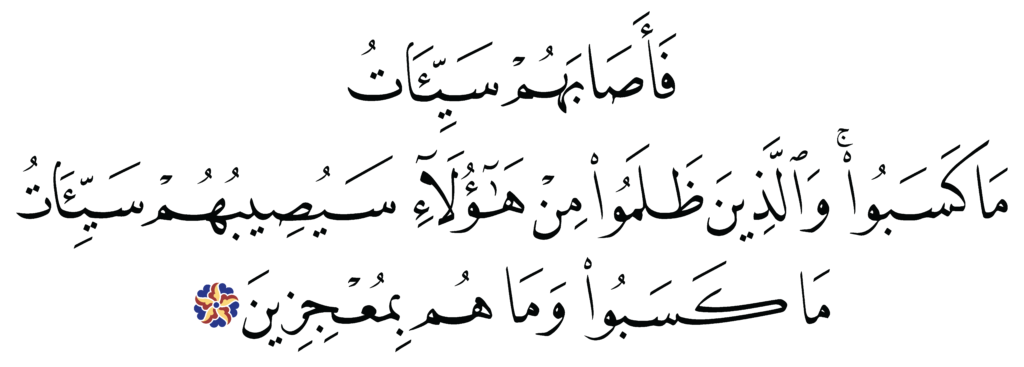 فَأَصَابَهُمْ سَيِّـَٔاتُ
مَا كَسَبُوا۟ ۚ وَٱلَّذِينَ ظَلَمُوا۟ مِنْ هَـٰٓؤُلَآءِ سَيُصِيبُهُمْ سَيِّـَٔاتُ
مَا كَسَبُوا۟ وَمَا هُم بِمُعْجِزِينَ